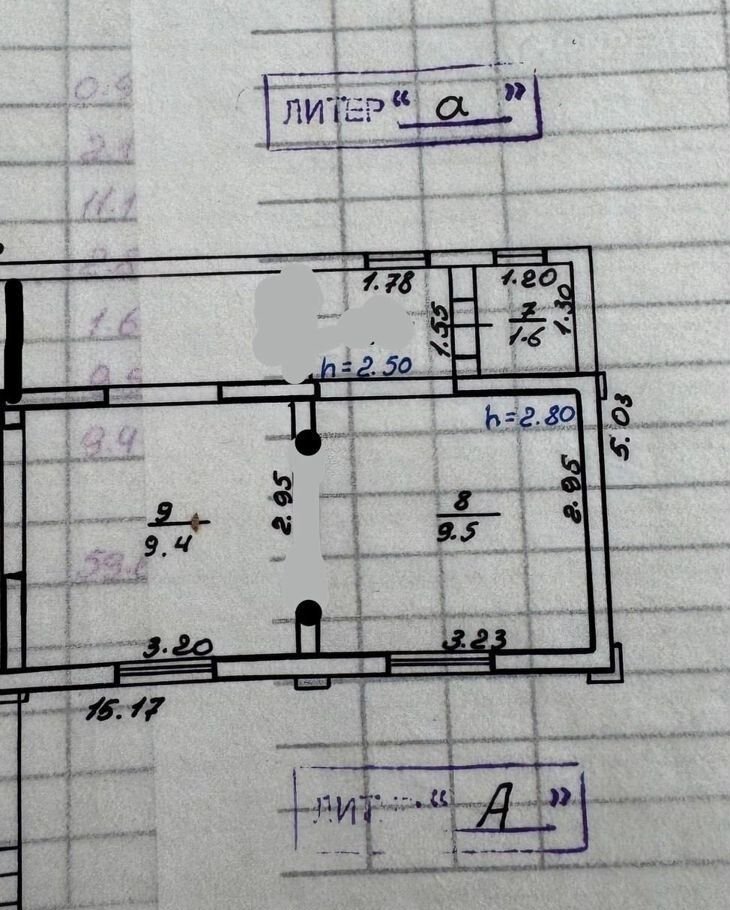 ЛИТЕР “ а ”
0.9
2.1
11.1
2.8
1.78
1.20
1.6
1.55
7
1.6
1.30
h=2.50
h=2.80
5.03
9.4
2.95
8
9.5
2.95
9
9.4
59.
3.20
3.23
15.17
ЛИТ “ А ”